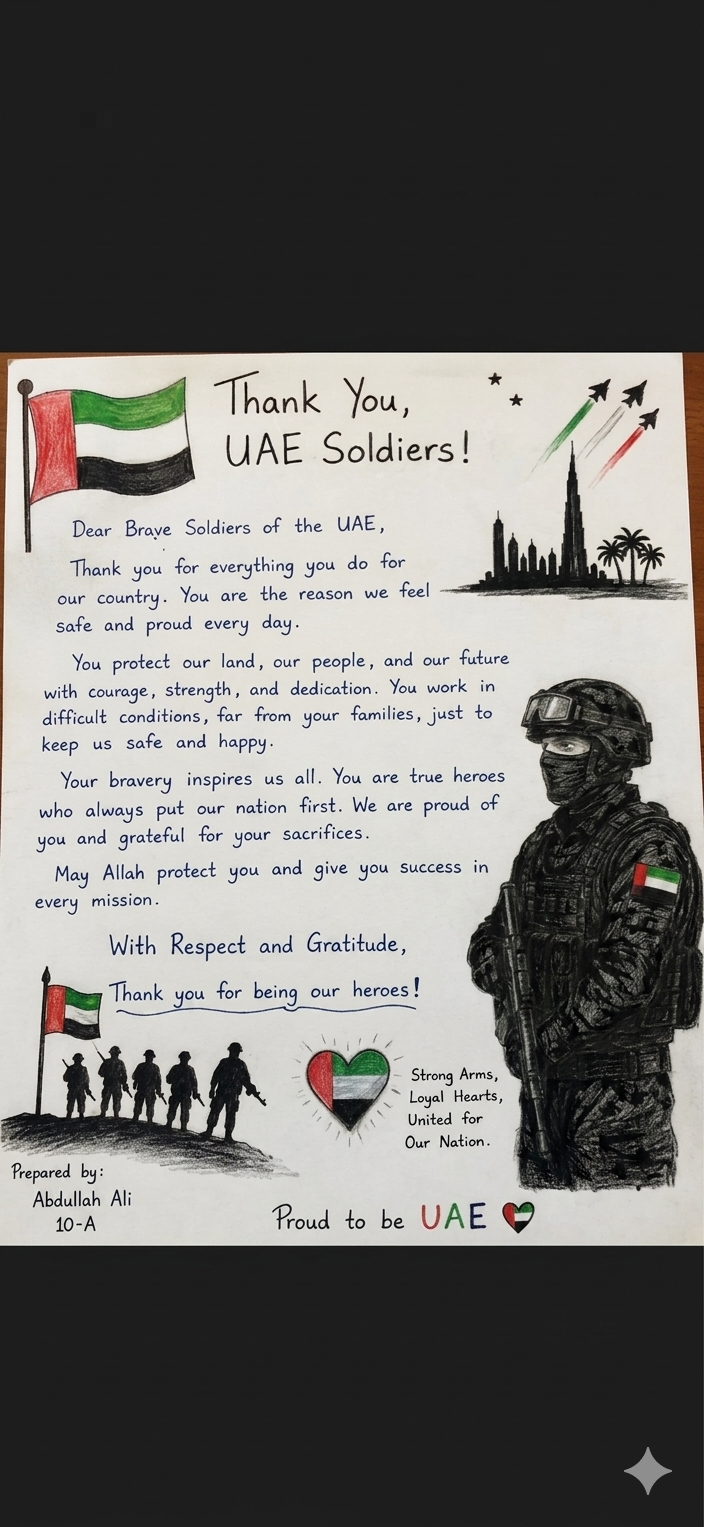 Thank You,
UAE Soldiers!
Dear Brave Soldiers of the UAE,
Thank you for everything you do for
our country. You are the reason we feel
safe and proud every day.
You protect our land, our people, and our future
with courage, strength, and dedication. You work in
difficult conditions, far from your families, just to
keep us safe and happy.
Your bravery inspires us all. You are true heroes
who always put our nation first. We are proud of
you and grateful for your sacrifices.
May Allah protect you and give you success in
every mission.
With Respect and Gratitude,
Thank you for being our heroes!
Strong Arms,
Loyal Hearts,
United for
Our Nation.
Prepared by:
Abdullah Ali
10-A
Proud to be UAE